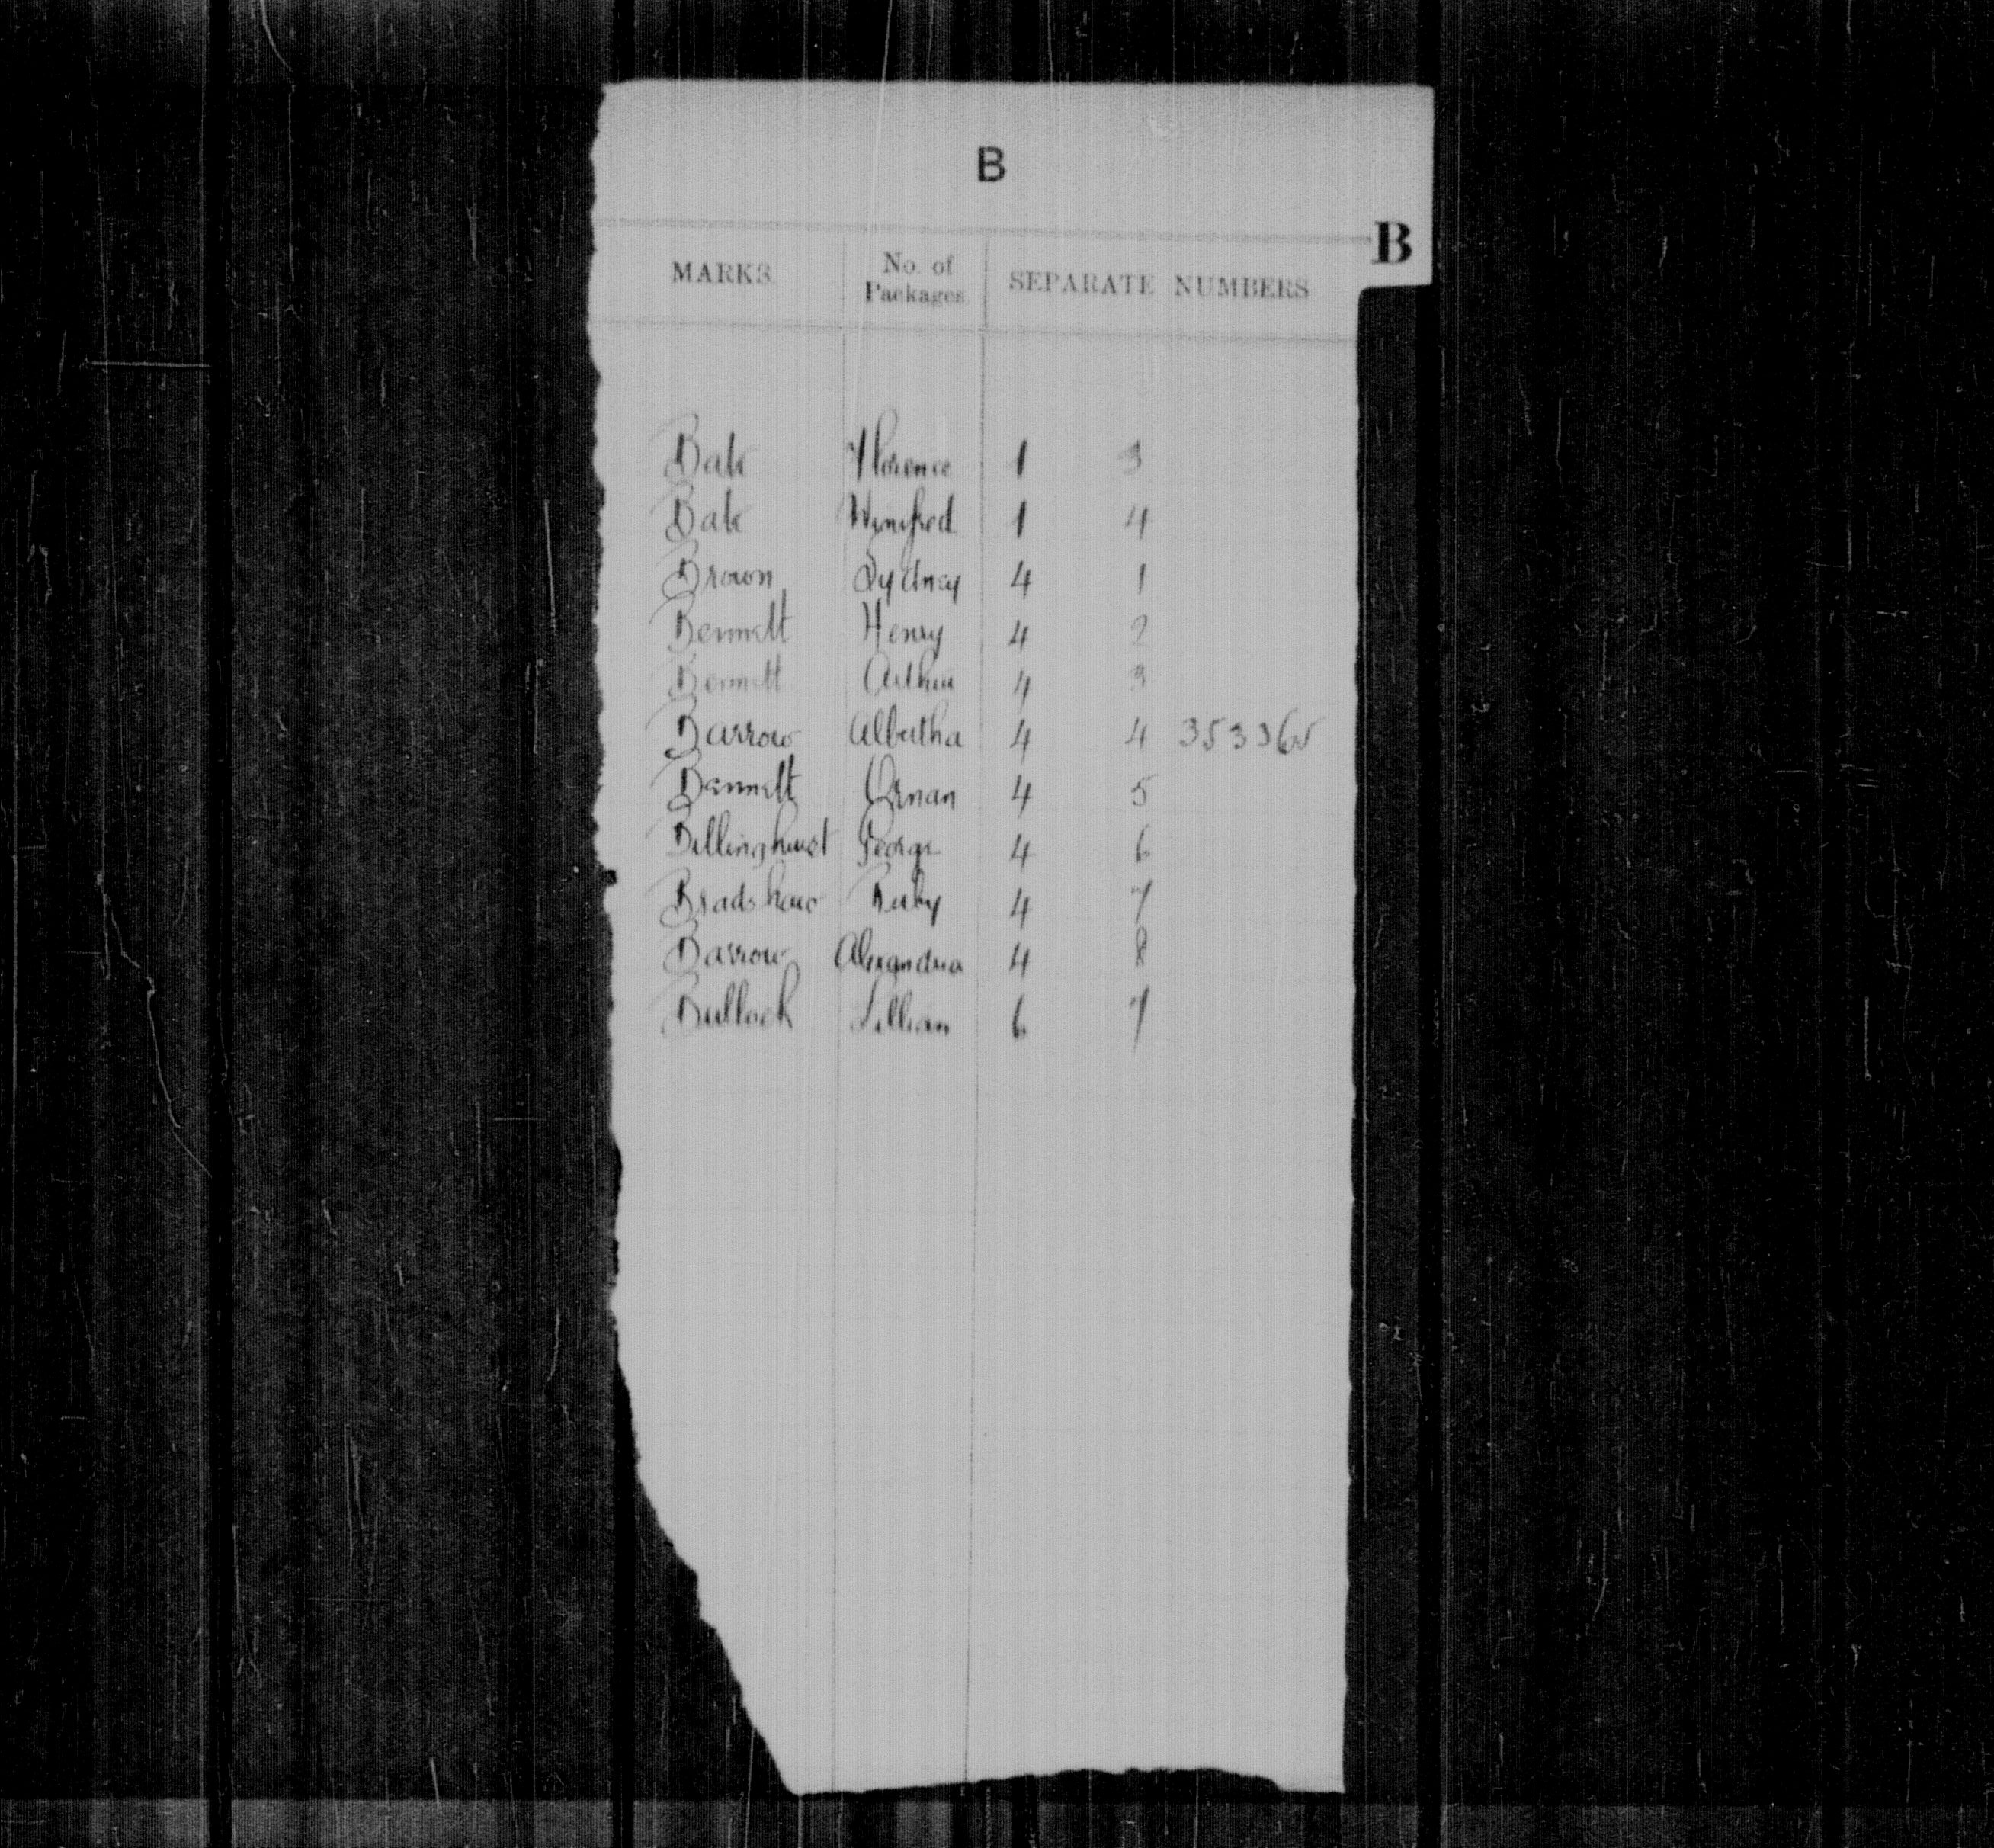 B
B
MARKS No. of Packages SEPARATE NUMBERS
Bate Florence 1 3
Bate Winifred 1 4
Brown Sydney 4 1
Bennett Henry 4 2
Bennett Arthur 4 3
Barrow Albertha 4 4 353365
Bennett Ornan 4 5
Billinghurst George 4 6
Bradshaw Ruby 4 7
Barrow Alexandria 4 8
Bullock Lillian 6 7